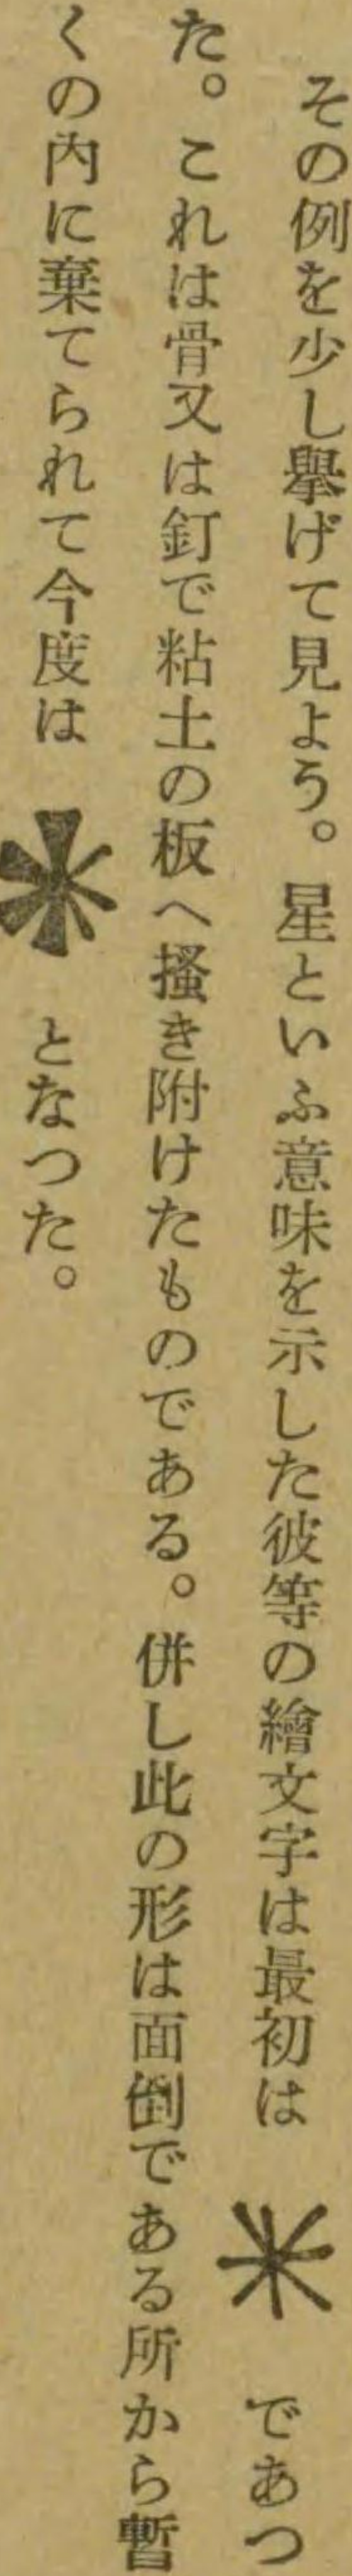 その例を少し擧げて見よう。星といふ意味を示した彼等の繪文字は最初は　であつ
た。これは骨又は釘で粘土の板へ搔き附けたものである。併し此の形は面倒である所から暫
くの内に棄てられて今度は　となつた。